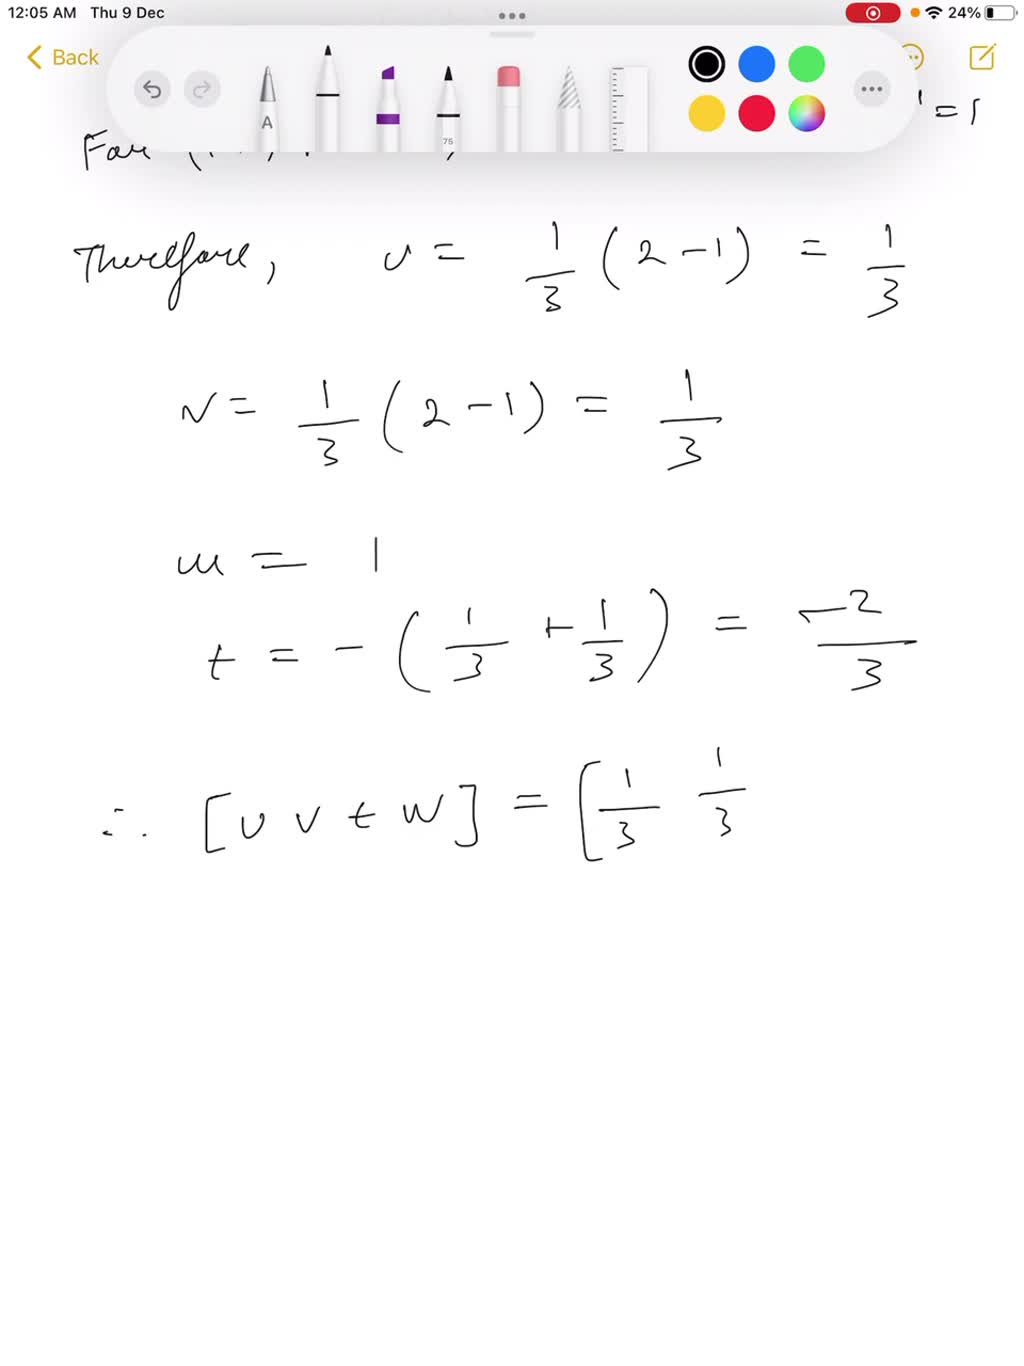 12:05 AM Thu 9 Dec 24%
Back
A
75
= 1
For
Therefore, u = 1/3 (2 - 1) = 1/3
v = 1/3 (2 - 1) = 1/3
w = 1
t = - (1/3 + 1/3) = -2/3
∴ [u v t w] = [1/3 1/3